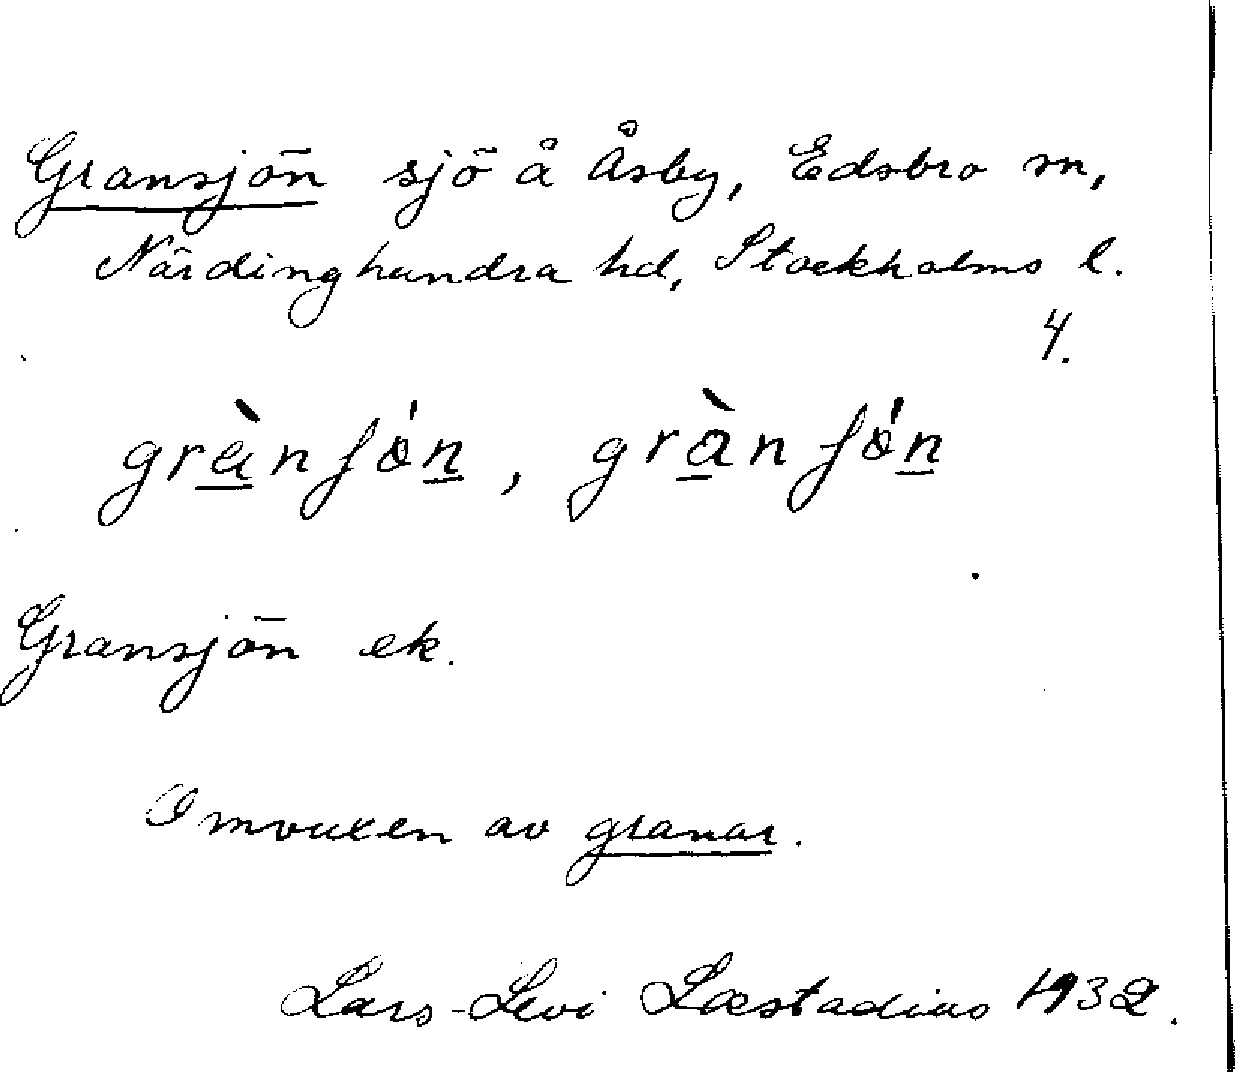 Gransjön sjö å Åsby, Edsbro sn,
Närdinghundra hd, Stockholms l.
4.
grànʃón, grànʃón
Gransjön ek.
Omvuxen av granar.
Lars-Levi Læstadius 1932.